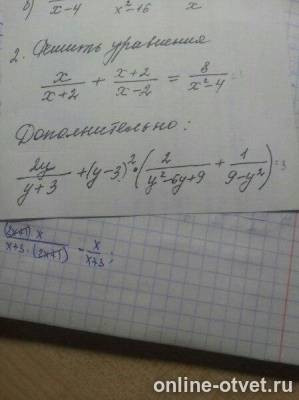 б) x-4 x²-16 x
2. Решить уравнения
x/(x+2) + (x+2)/(x-2) = 8/(x²-4)
Дополнительно:
2y/(y+3) + (y-3)² · (2/(y²-6y+9) + 1/(9-y²)) = 3
(2x+1) x/(x+3 · (2x+1)) - x/(x+3) ;
online-otvet.ru